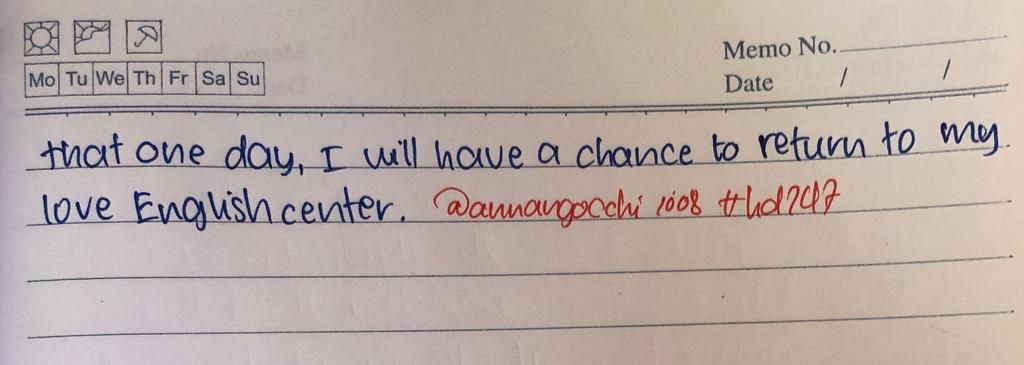 Memo No.
Mo Tu We Th Fr Sa Su
Date / /
that one day, I will have a chance to return to my
love English center. @annangocchi 1008 #hd747